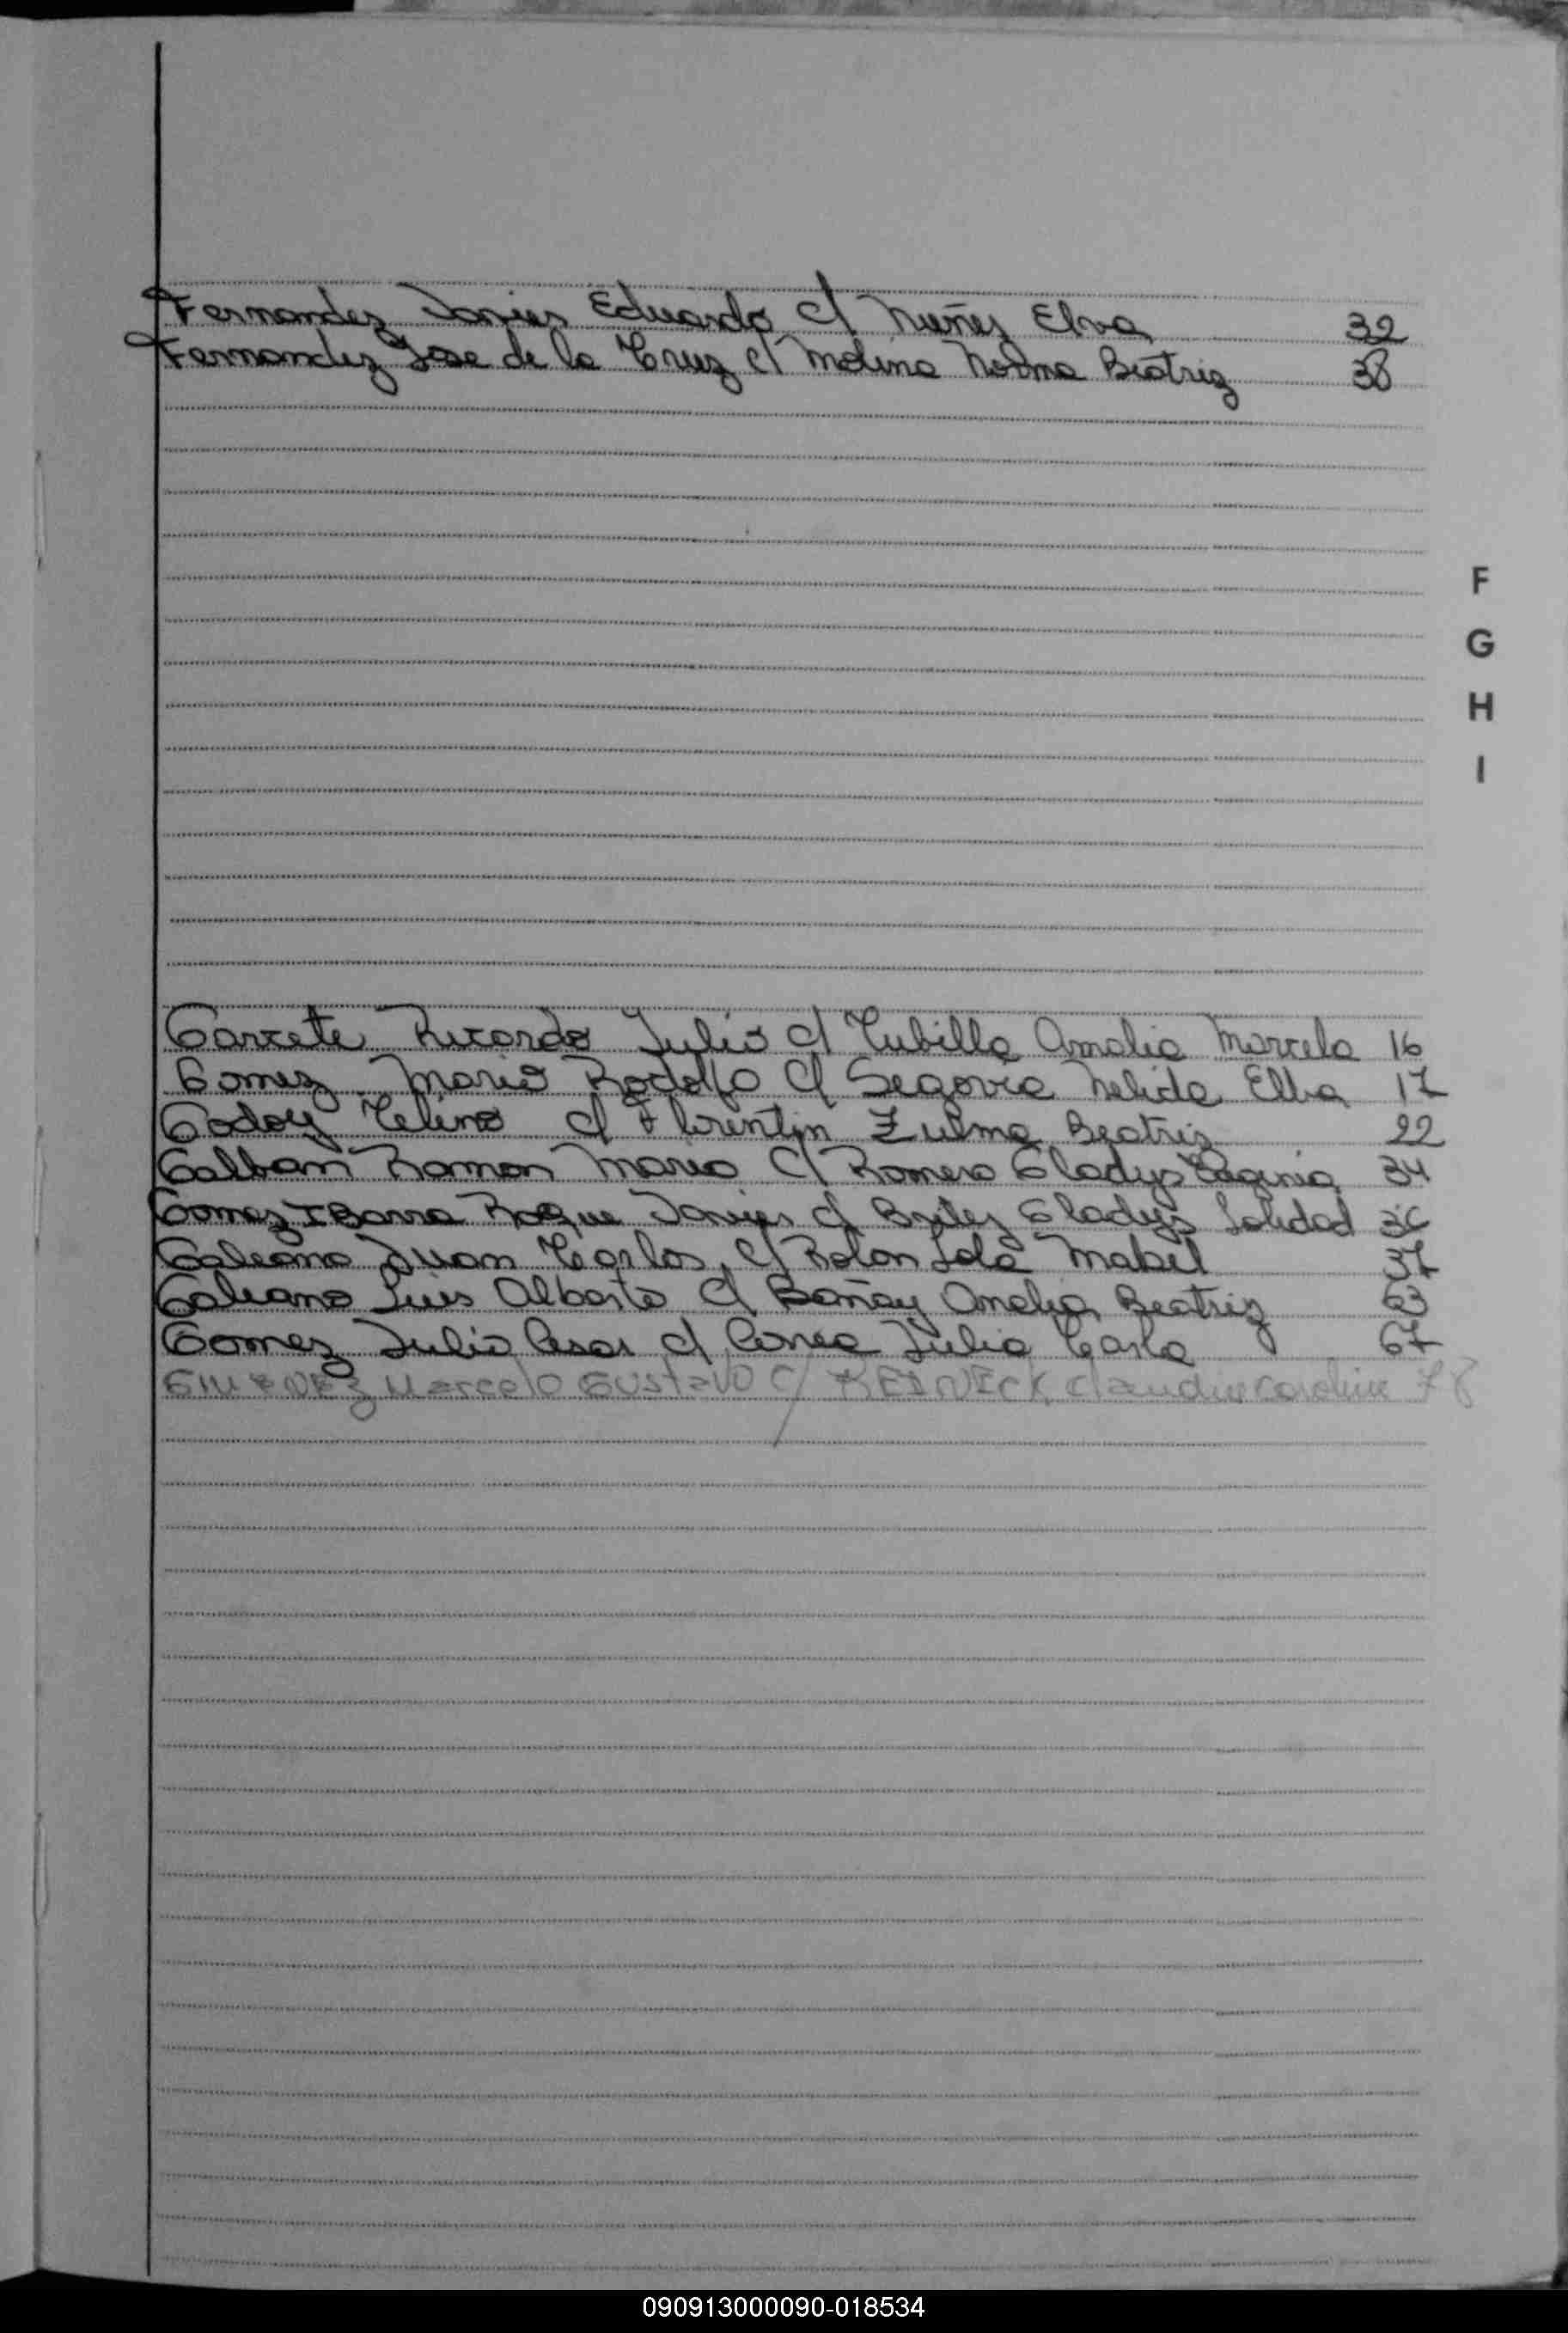 Fernandez Javier Eduardo c/ Nuñez Elva 32
Fernandez Jose de la Cruz c/ Molina Norma Beatriz 38
F
G
H
I
Garcete Ricardo Julio c/ Cubilla Amalia Marcela 16
Gomez Mario Rodolfo c/ Segovia Nelida Elba 17
Godoy Celino c/ Florentin Zulma Beatriz 22
Galban Ramon Mario c/ Romero Gladys 34
Gomez Ibarra Roque Javier c/ Britez Gladys Soledad 36
Galeano Juan Carlos c/ Rolon Lola Mabel 37
Galeano Luis Alberto c/ Bañay Amalia Beatriz 63
Gomez Julio Cesar c/ Correa Julia Carla 67
GIMENEZ Marcelo GUSTAVO c/ REINICK claudia carolina 78
090913000090-018534